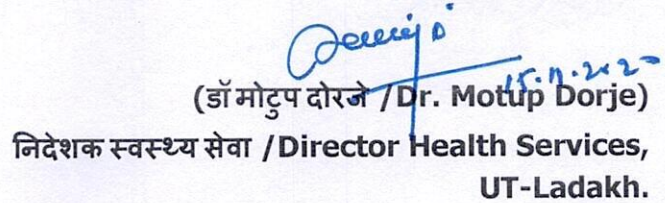 (डॉ मोटुप दोरजे /Dr. Motup Dorje)
निदेशक स्वस्थ्य सेवा /Director Health Services,
UT-Ladakh.